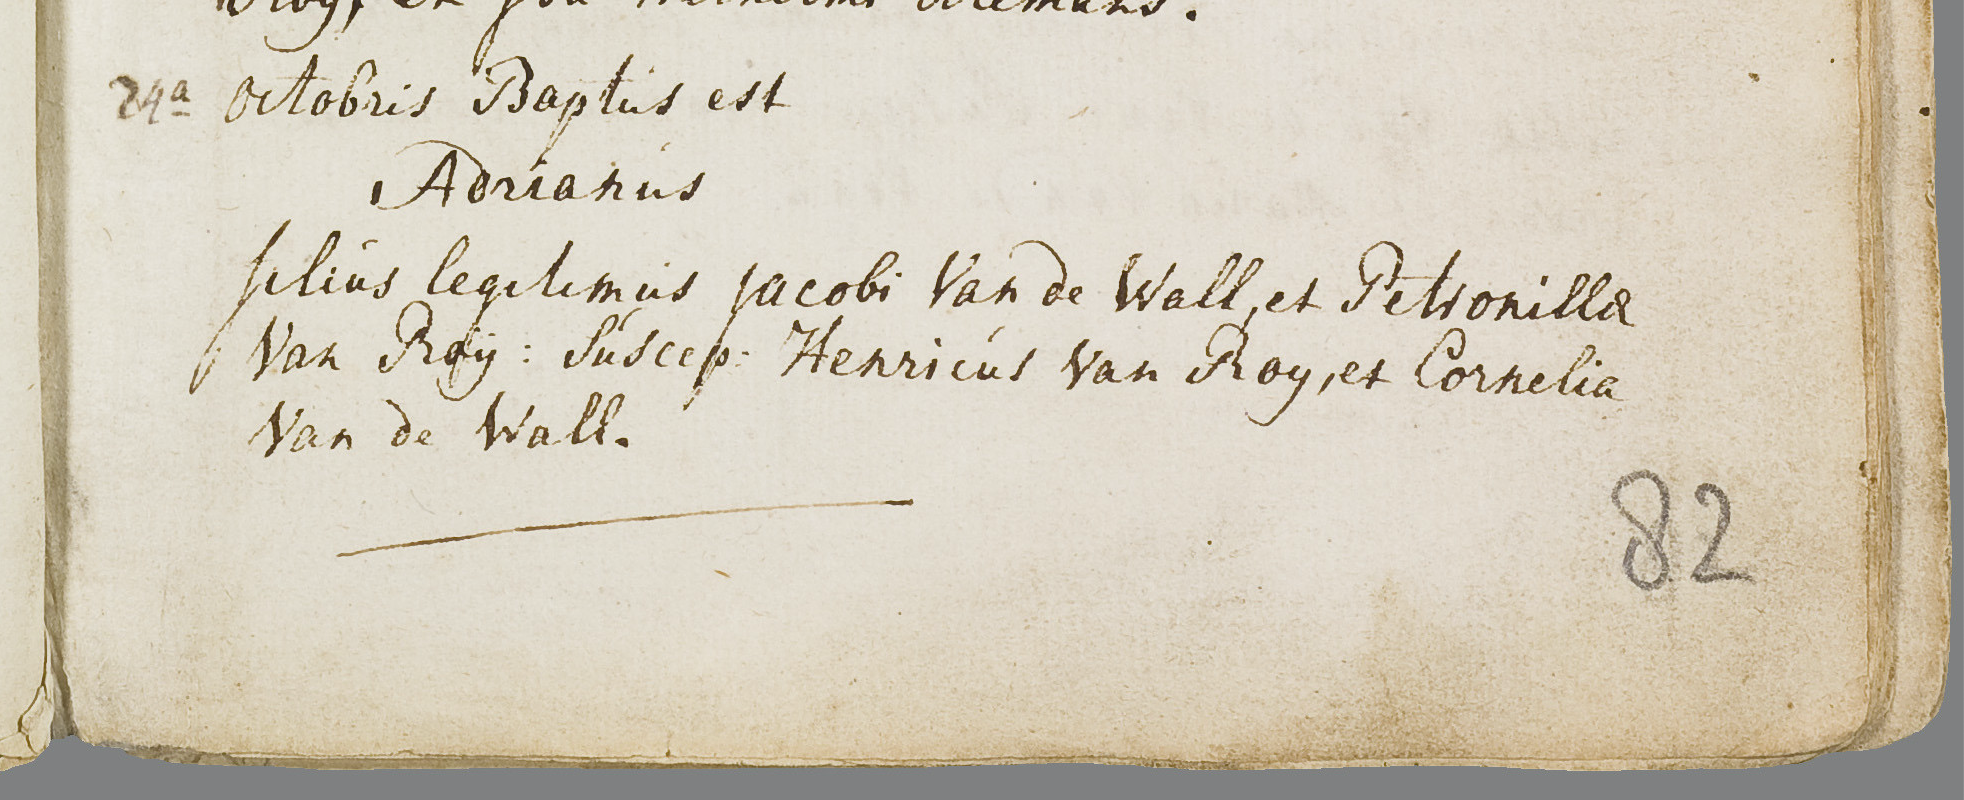 24a octobris Baptus est
Adrianus
filius legitimus Jacobi Van de Wall, et Petronillæ
Van Roÿ: Suscep: Henricus Van Roy, et Cornelia
Van de Wall.
82